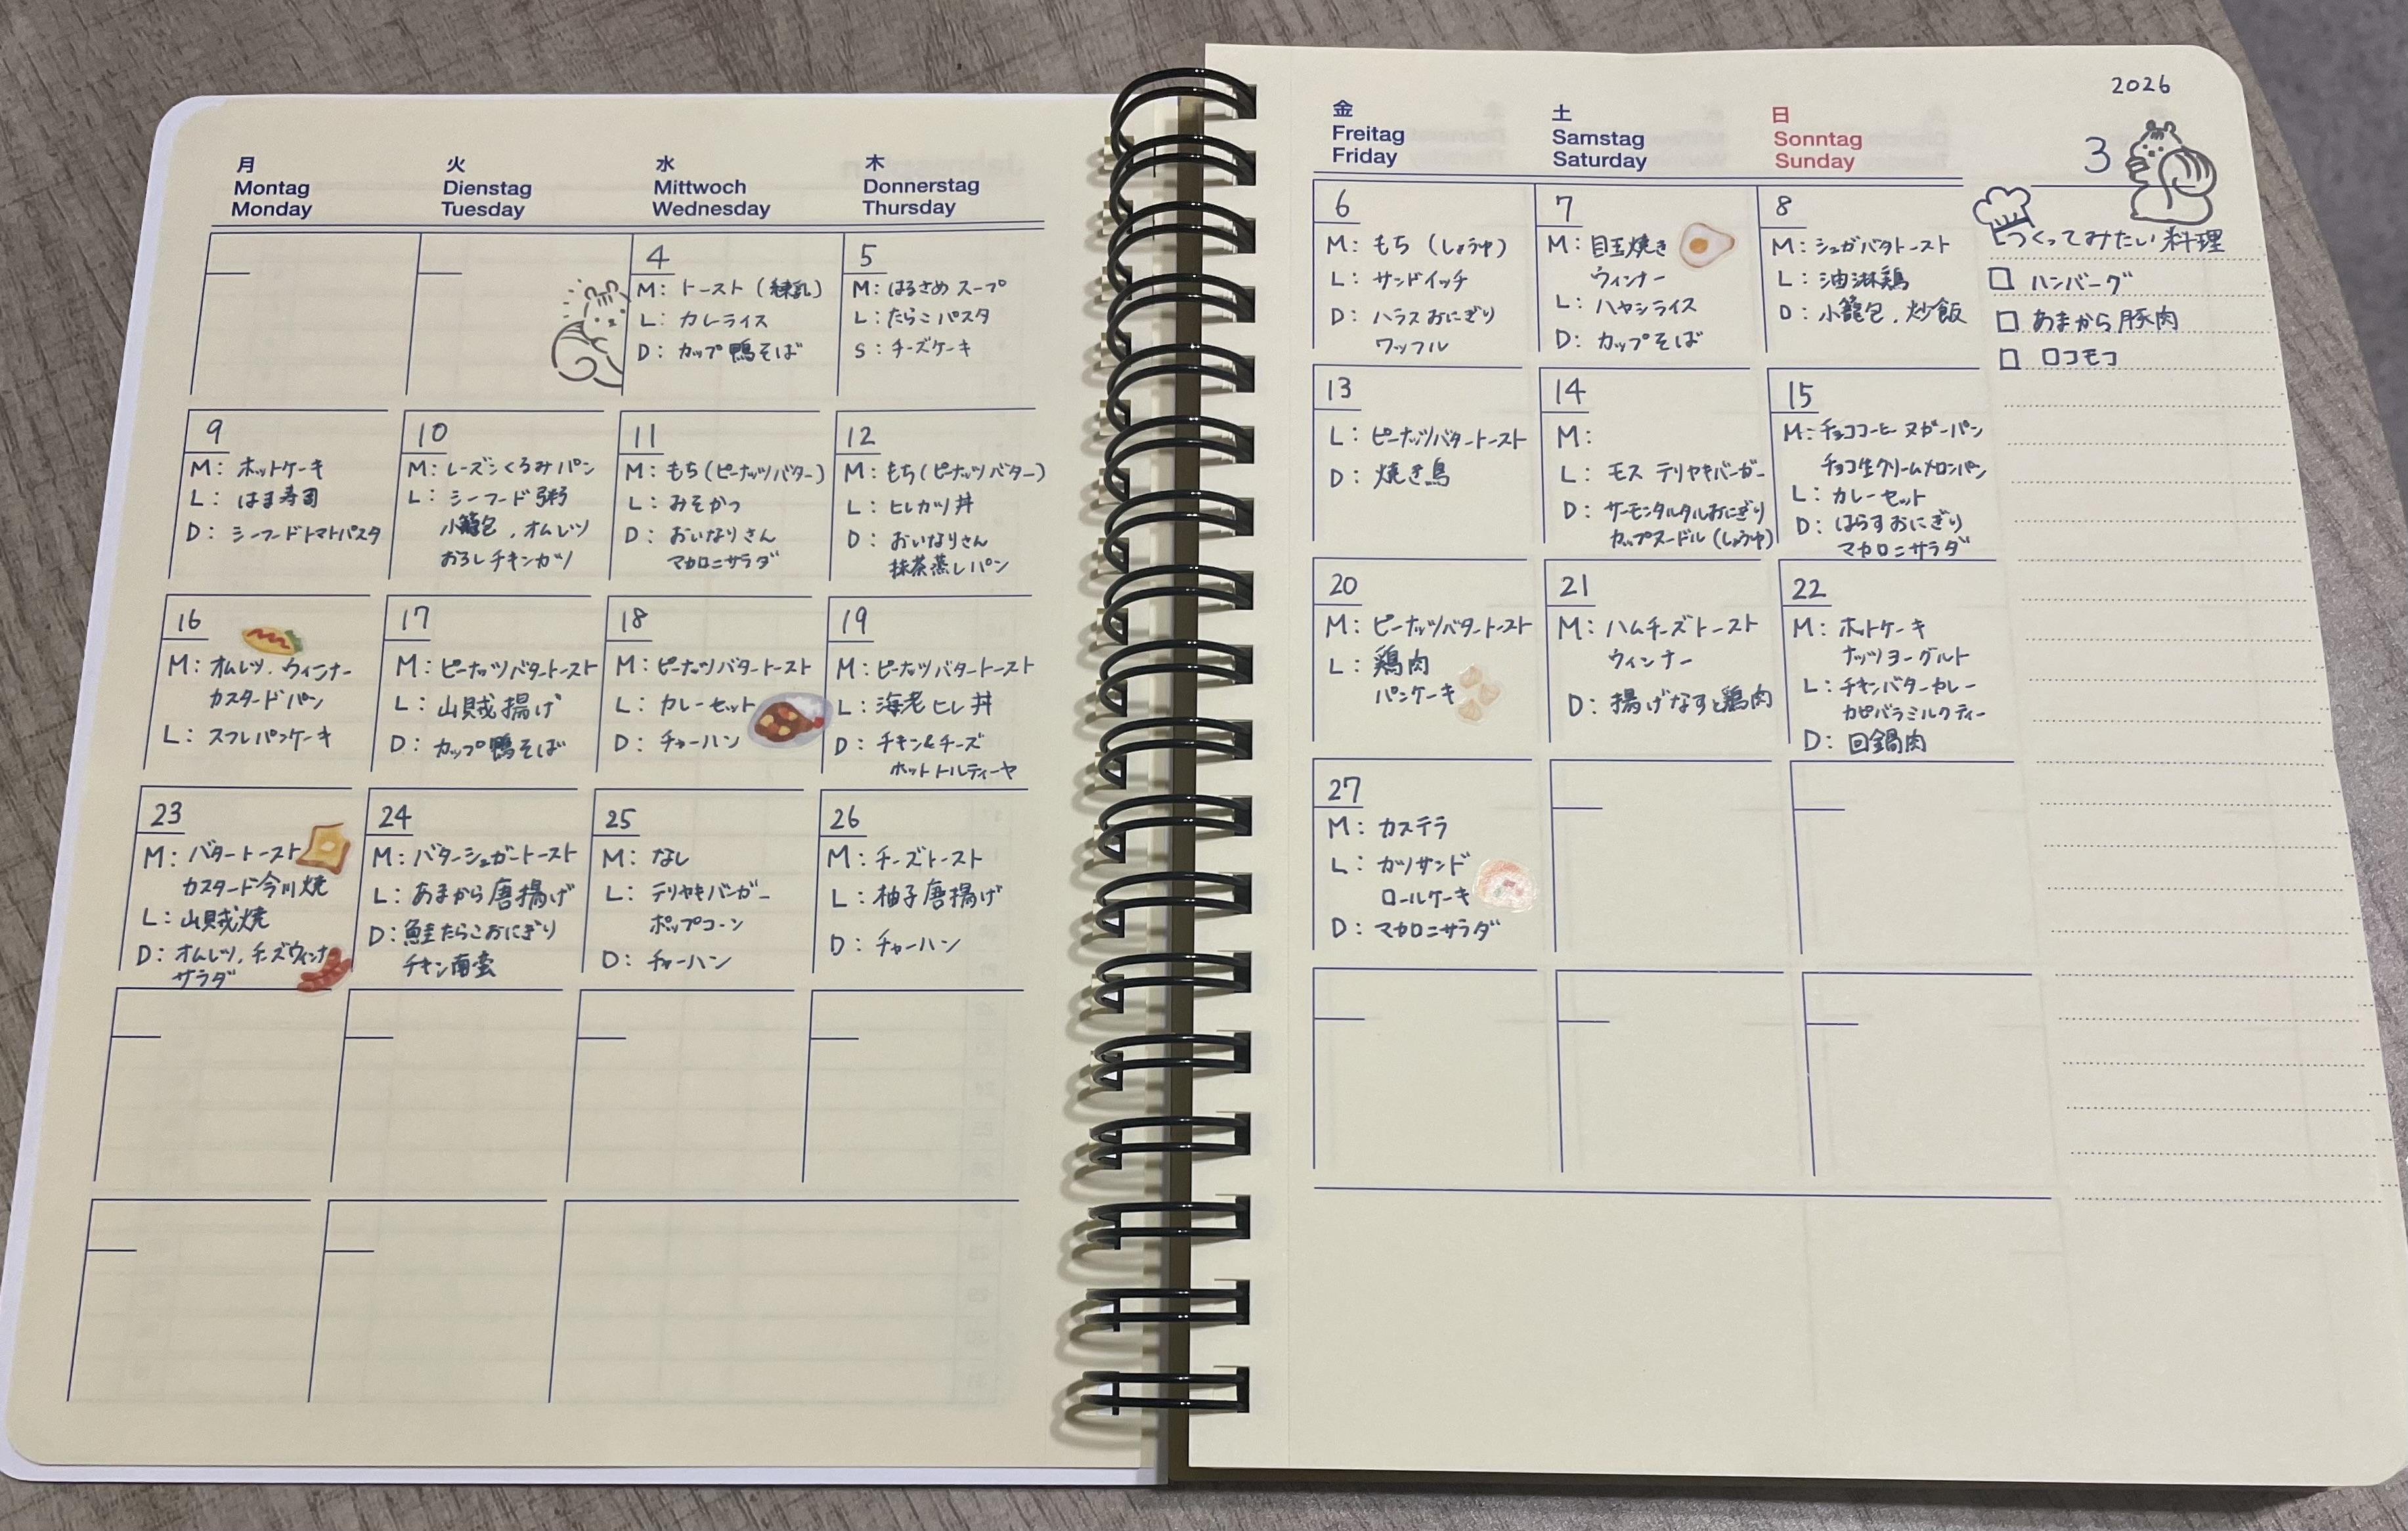 月
Montag
Monday
火
Dienstag
Tuesday
水
Mittwoch
Wednesday
木
Donnerstag
Thursday
4
M: トースト(練乳)
L: カレーライス
D: カップ鴨そば
5
M: はるさめスープ
L: たらこパスタ
S: チーズケーキ
9
M: ホットケーキ
L: はま寿司
D: シーフードトマトパスタ
10
M: レーズンくるみパン
L: シーフード粥
小籠包、オムレツ
おろしチキンカツ
11
M: もち(ピーナッツバター)
L: みそかつ
D: おいなりさん
マカロニサラダ
12
M: もち(ピーナッツバター)
L: ヒレカツ丼
D: おいなりさん
抹茶蒸しパン
16
M: オムレツ、ウィンナー
カスタードパン
L: スフレパンケーキ
17
M: ピーナッツバタートースト
L: 山賊揚げ
D: カップ鴨そば
18
M: ピーナッツバタートースト
L: カレーセット
D: チャーハン
19
M: ピーナッツバタートースト
L: 海老ヒレ丼
D: チキン&チーズ
ホットトルティーヤ
23
M: バタートースト
カスタード今川焼
L: 山賊焼
D: オムレツ、チーズウィンナー
サラダ
24
M: バターシュガートースト
L: あまから唐揚げ
D: 鮭たらこおにぎり
チキン南蛮
25
M: なし
L: テリヤキバーガー
ポップコーン
D: チャーハン
26
M: チーズトースト
L: 柚子唐揚げ
D: チャーハン
金
Freitag
Friday
土
Samstag
Saturday
日
Sonntag
Sunday
2026
3
6
M: もち (しょうゆ)
L: サンドイッチ
D: ハラスおにぎり
ワッフル
7
M: 目玉焼き
ウィンナー
L: ハヤシライス
D: カップそば
8
M: シュガバタトースト
L: 油淋鶏
D: 小籠包、炒飯
13
L: ピーナッツバタートースト
D: 焼き鳥
14
M:
L: モス テリヤキバーガー
D: サーモンタルタルおにぎり
カップヌードル(しょうゆ)
15
M: チョココーヒーヌガーパン
チョコ生クリームメロンパン
L: カレーセット
D: はらすおにぎり
マカロニサラダ
20
M: ピーナッツバタートースト
L: 鶏肉
パンケーキ
21
M: ハムチーズトースト
ウィンナー
D: 揚げなすと鶏肉
22
M: ホットケーキ
ナッツヨーグルト
L: チキンバターカレー
カピバラミルクティー
D: 回鍋肉
27
M: カステラ
L: カツサンド
ロールケーキ
D: マカロニサラダ
つくってみたい料理
ハンバーグ
あまから豚肉
ロコモコ